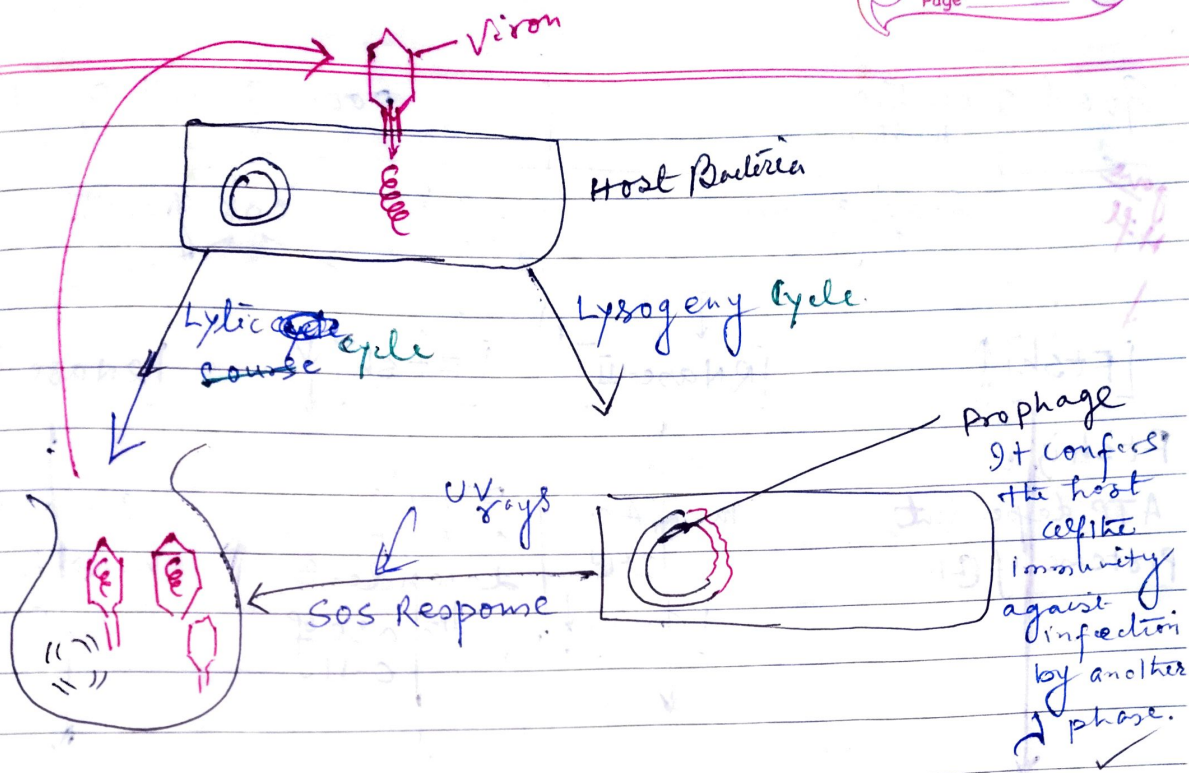 Page
Viron
Host Bacteria
Lytic cycle
Lysogeny Cycle.
Prophage
It confers
the host
immunity
against
infection
by another
phase.
UV
rays
SOS Response